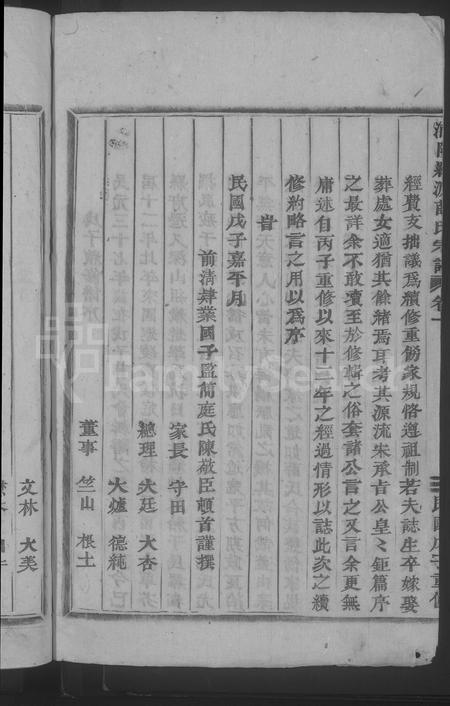 經費支拙議爲續修重仿家規恪遵祖制若夫誌生卒嫁娶
葬處女適猶其餘緒焉耳考其源流朱承旨公皇〻鉅篇序
之最詳余不敢瀆至於修輯之俗套諸公言之又言余更無
庸述自丙子重修以來十二年之經過情形以誌此次之續
修約略言之用以爲序
旹
民國戊子嘉平月
前清肄業國子監簡庭氏陳敬臣頓首謹撰
家長 守田
總理 大廷 大杏
大爐 德純
董事 竺山 根土
文林 大美
FamilySearch